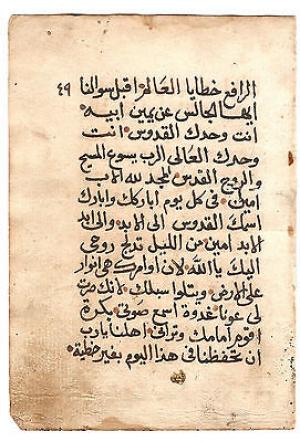 ٤٩
الرافع خطايا العالم اقبل سوالنا
ايها الجالس عن يمين ابيه
انت وحدك القدوس انت
وحدك العالى الرب يسوع المسيح
والروح القدس لمجد لله الاب
امين في كل يوم اباركك وابارك
اسمك القدوس الى الابد والى ابد
الابد امين من الليل تدلج روحي
اليك يا الله لان اوامرك هي انوار
على الارض ويتلوا سبلك لانك صرت
لي عونا غدوة اسمع صوتي بكرة
اقوم امامك وتراني اهلنا يارب
ان تحفظنا في هذا اليوم بغير خطية